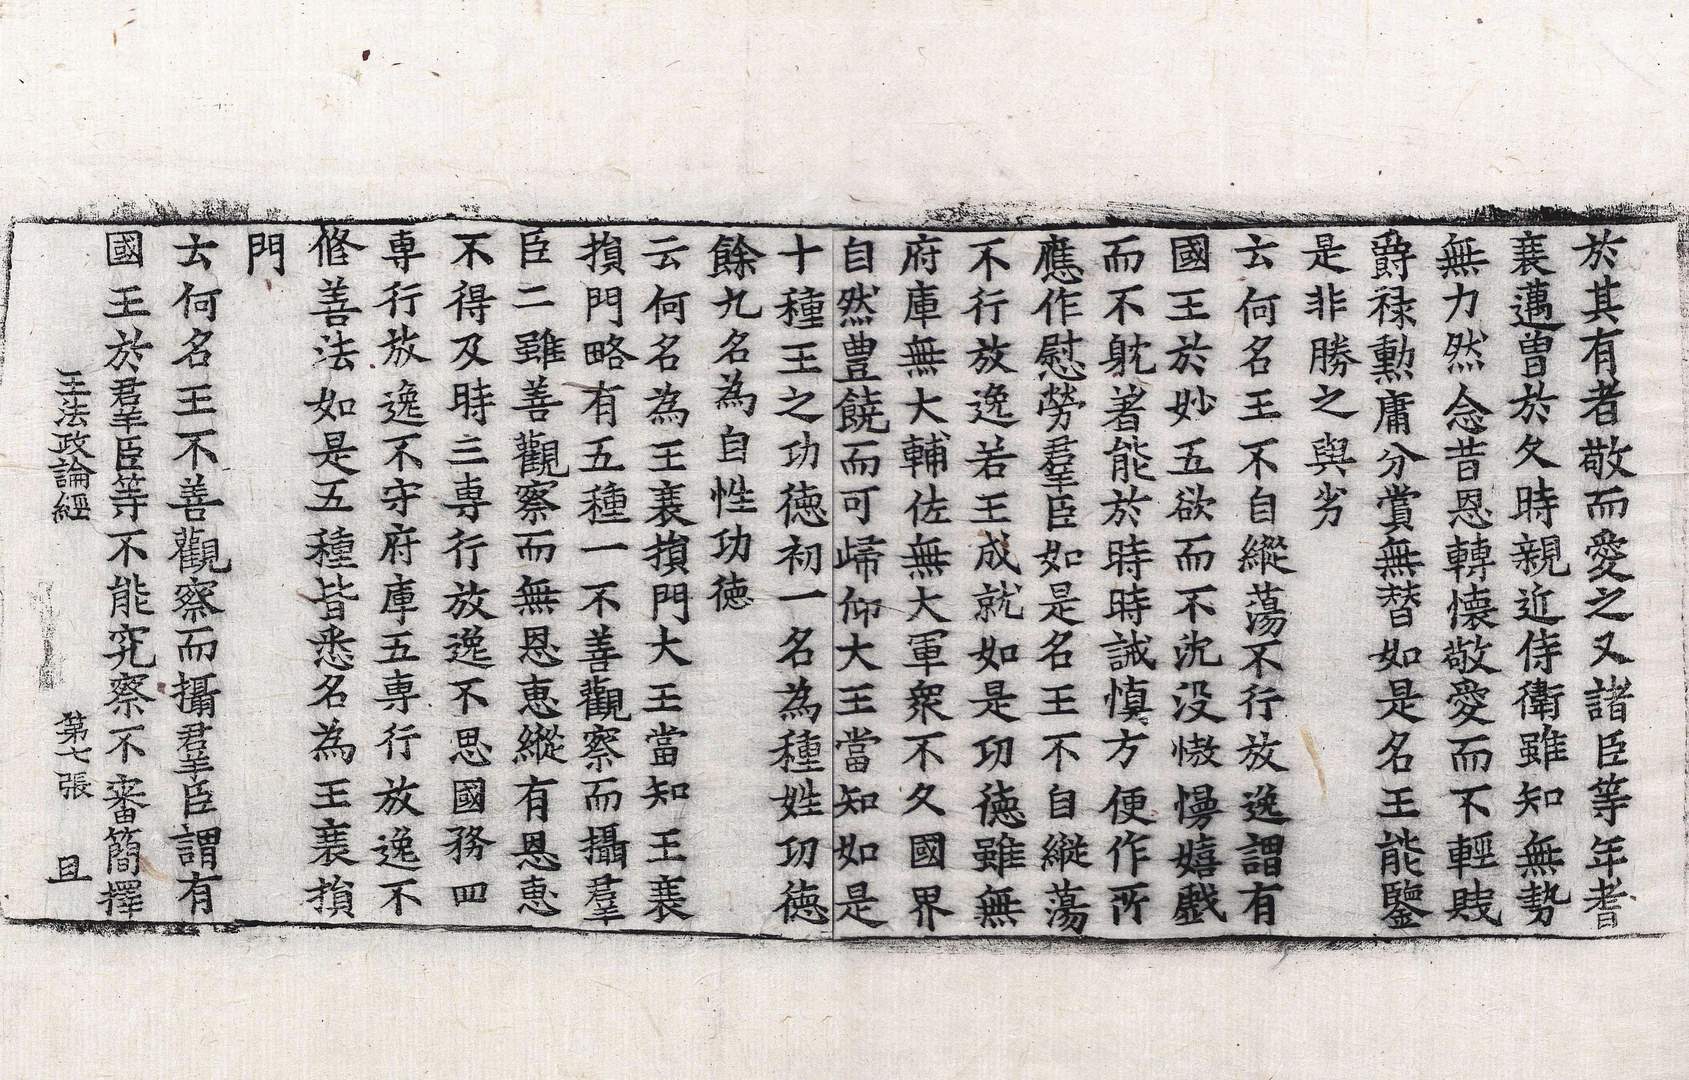 於其有者敬而愛之又諸臣等年耆
衰邁曾於久時親近侍衛雖知無勢
無力然念昔恩轉懷敬愛而不輕賤
爵祿勳庸分賞無替如是名王能鑒
是非勝之與劣
云何名王不自縱蕩不行放逸謂有
國王於妙五欲而不沈没慠慢嬉戯
而不躭著能於時時誡慎方便作所
應作慰勞羣臣如是名王不自縱蕩
不行放逸若王成就如是功德雖無
府庫無大輔佐無大軍衆不久國界
自然豊饒而可歸仰大王當知如是
十種王之功德初一名為種姓功德
餘九名為自性功德
云何名為王衰損門大王當知王衰
損門略有五種一不善觀察而攝羣
臣二雖善觀察而無恩惠縱有恩惠
不得及時三專行放逸不思國務四
專行放逸不守府庫五專行放逸不
修善法如是五種皆悉名為王衰損
門
云何名王不善觀察而攝羣臣謂有
國王於羣臣等不能究察不審簡擇
王法政論經 第七張 且